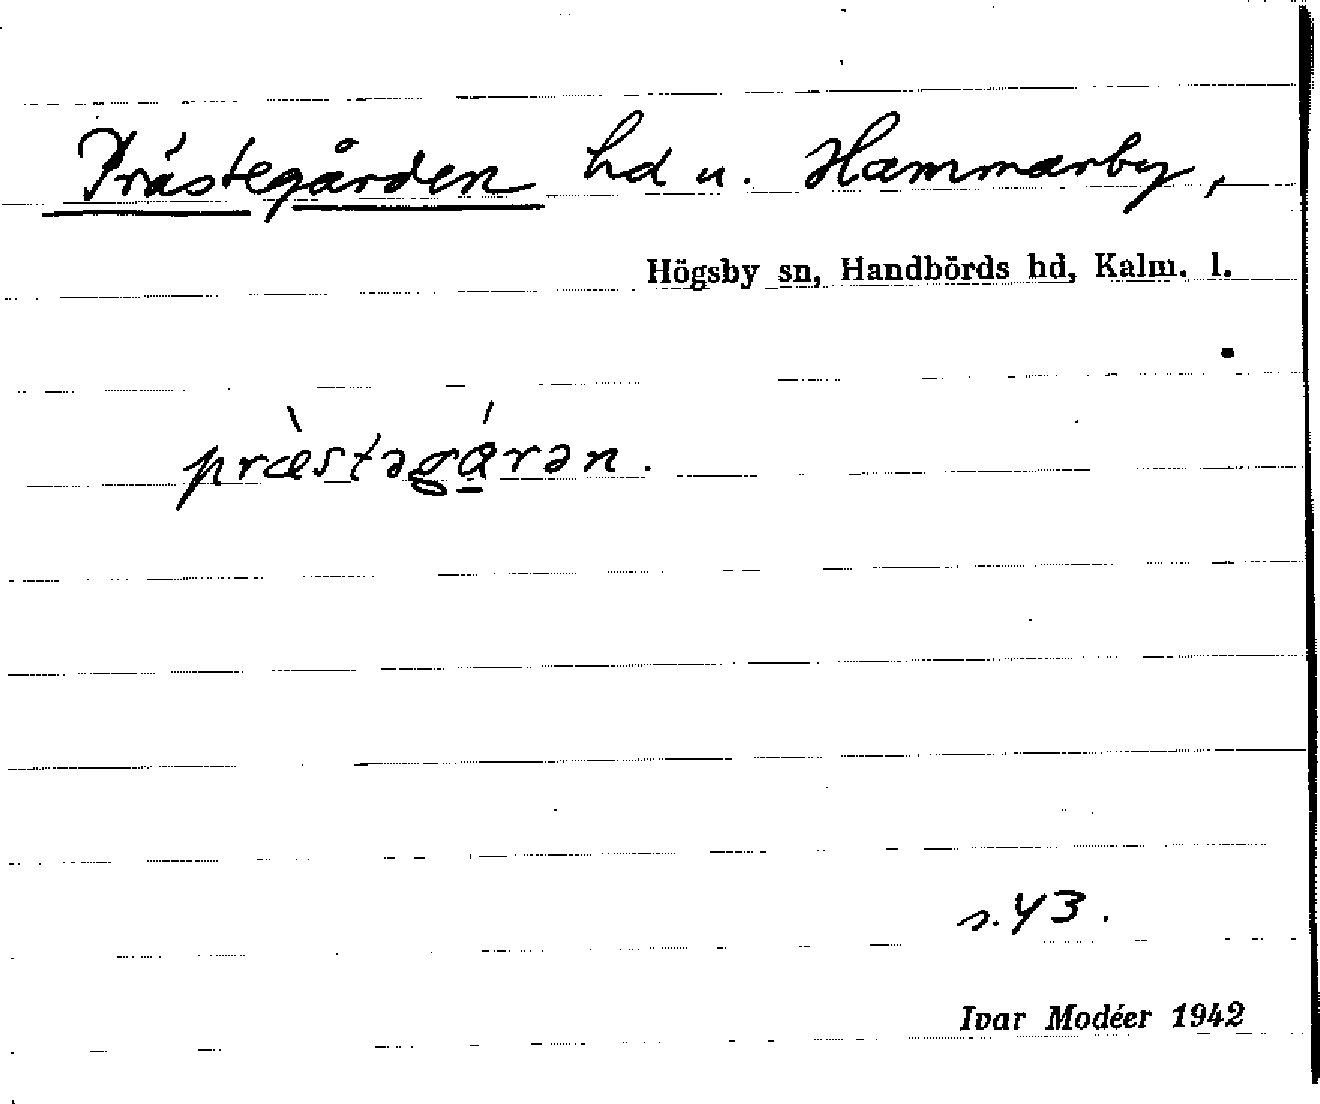 Prästegården hd u. Hammarby,
Högsby sn, Handbörds hd, Kalm. l.
præ̀stəgá̱rən.
s. 43.
Ivar Modéer 1942